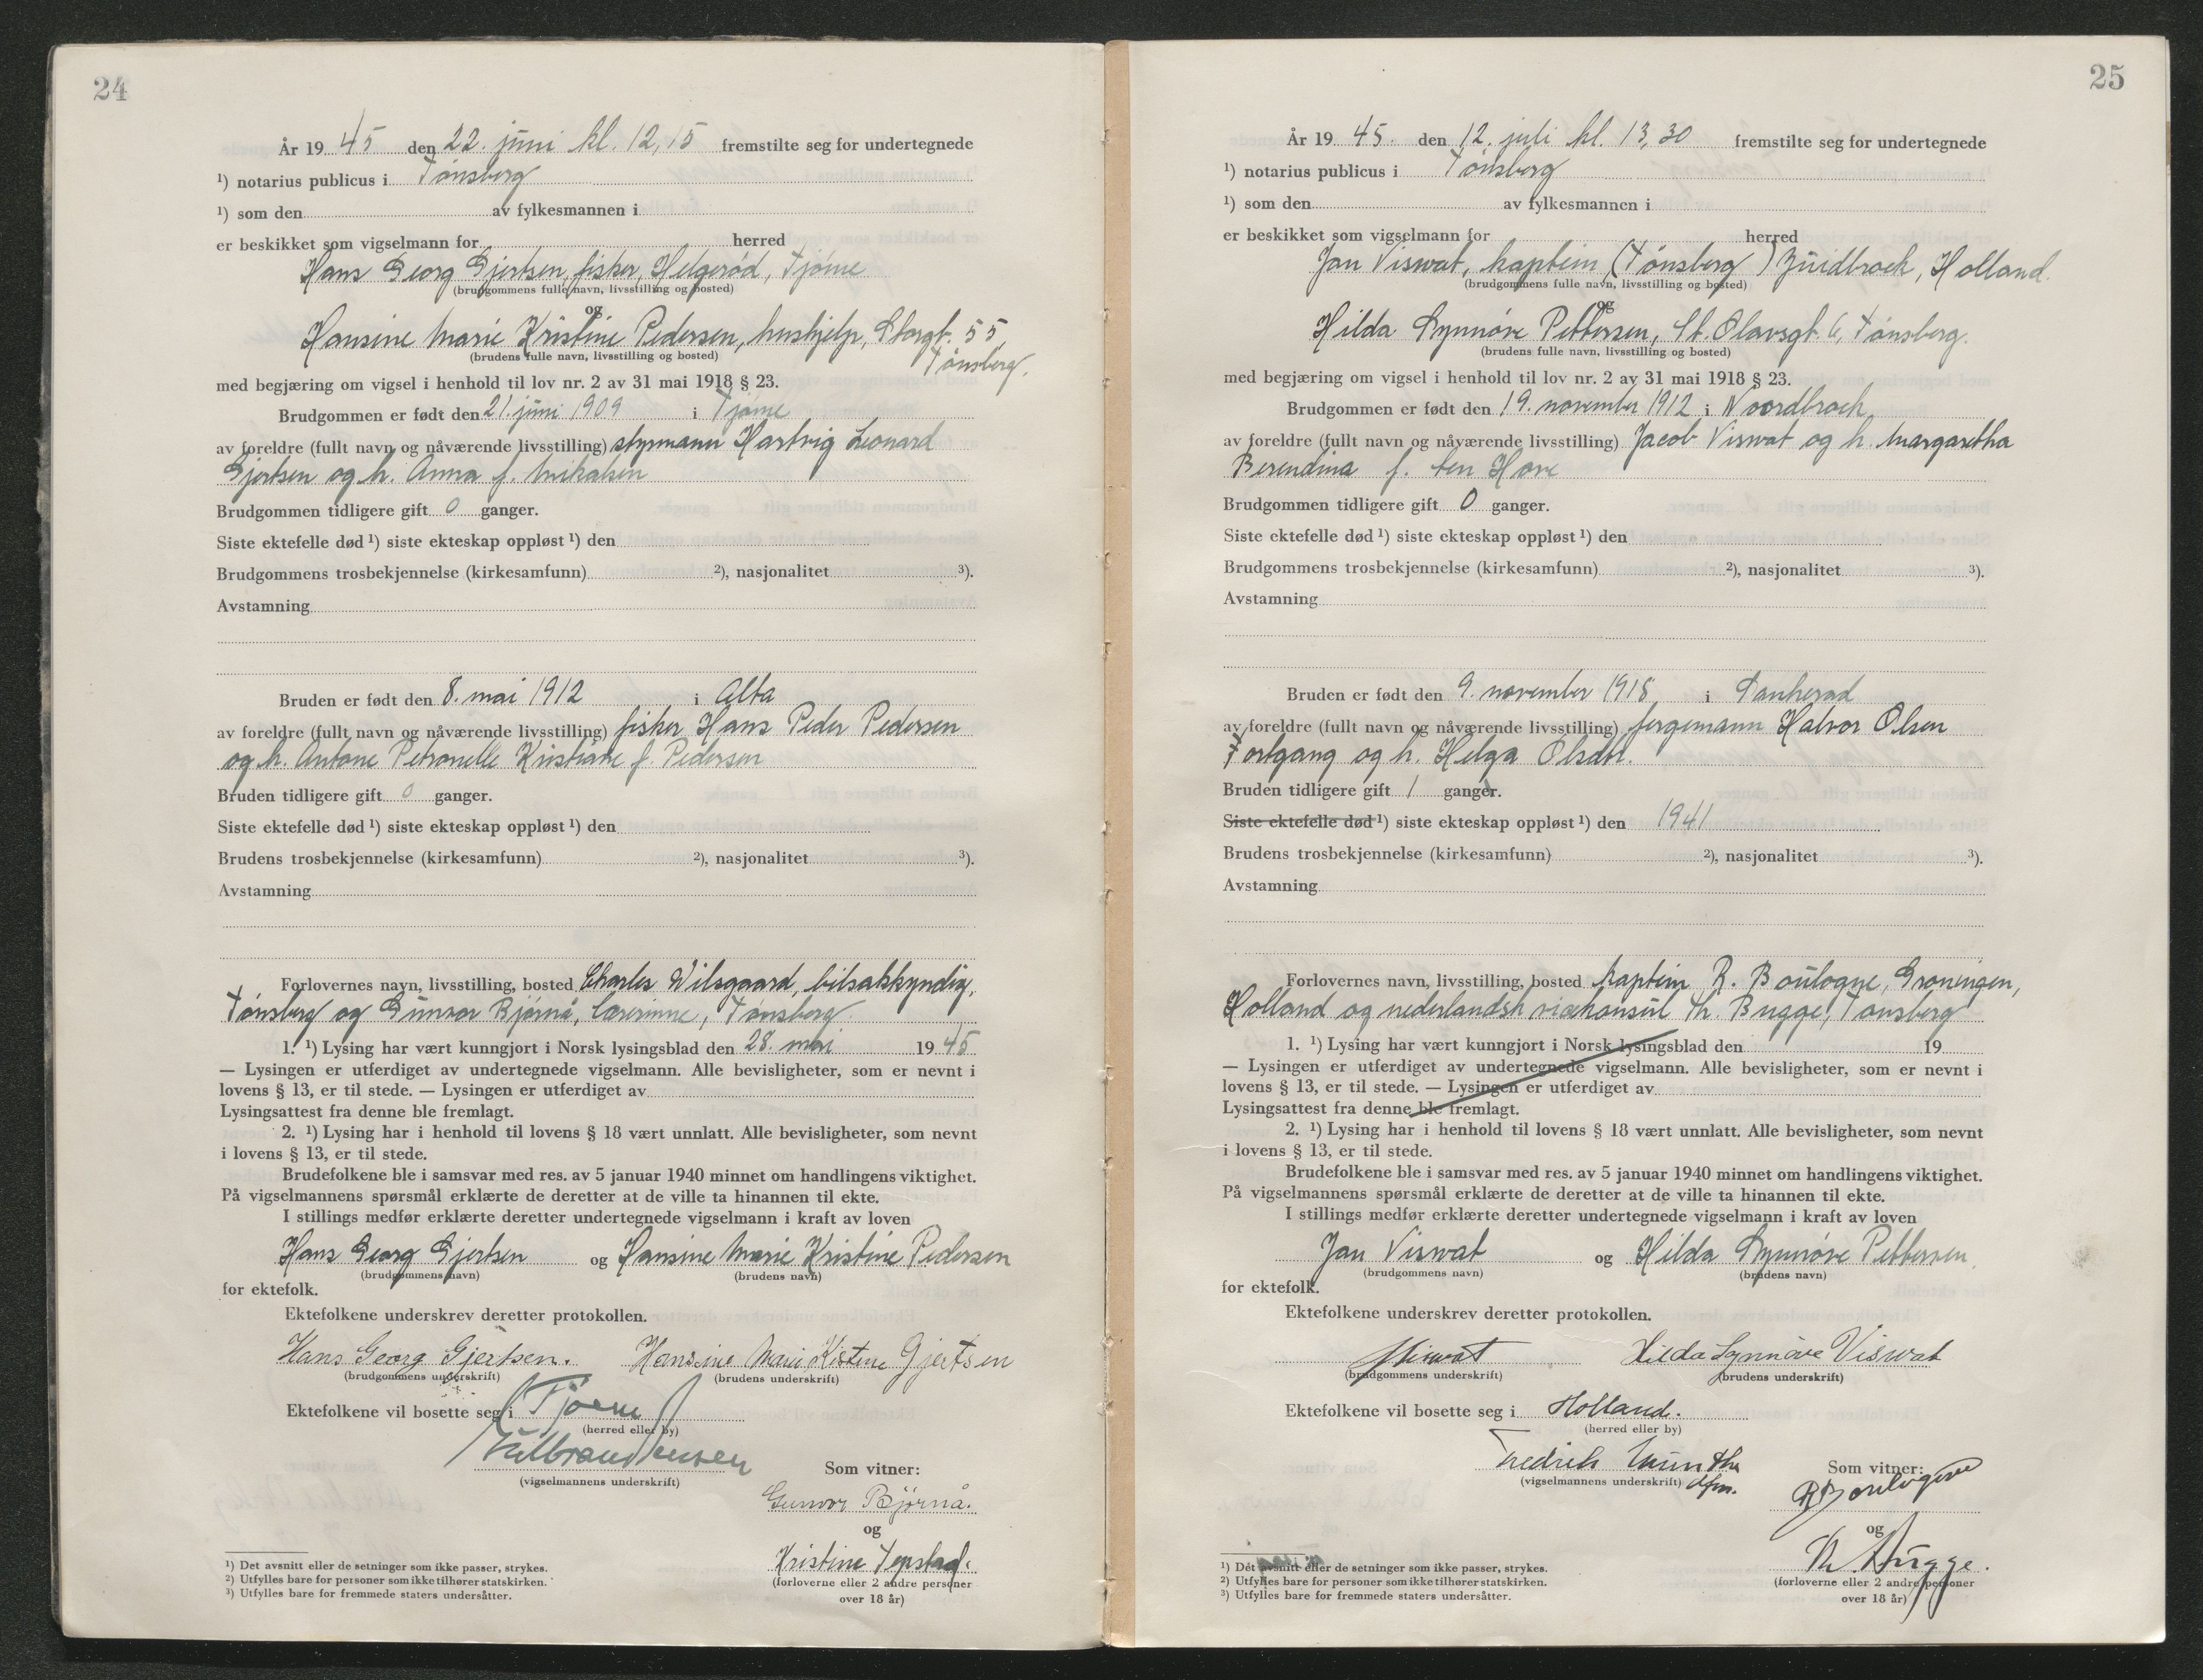 24
År 1945 den 22. juni kl. 12,15 fremstilte seg for undertegnede
¹) notarius publicus i Tønsberg
¹) som den av fylkesmannen i
er beskikket som vigselmann for herred
Hans Georg Gjertsen, fisker, Helgerød, Tjøme
(brudgommens fulle navn, livsstilling og bosted)
og
Hansine Marie Kristine Pedersen, hushjelp, Storgt. 55
Tønsberg.
(brudens fulle navn, livsstilling og bosted)
med begjæring om vigsel i henhold til lov nr. 2 av 31 mai 1918 § 23.
Brudgommen er født den 21. juni 1909 i Tjøme
av foreldre (fullt navn og nåværende livsstilling) styrmann Hartvig Leonard
Gjertsen og h. Anna f. Mikalsen
Brudgommen tidligere gift 0 ganger.
Siste ektefelle død ¹) siste ekteskap oppløst ¹) den
Brudgommens trosbekjennelse (kirkesamfunn) ²), nasjonalitet ³).
Avstamning
Bruden er født den 8. mai 1912 i Alta
av foreldre (fullt navn og nåværende livsstilling) fisker Hans Peder Pedersen
og h. Antone Petronelle Kristiane f. Pedersen
Bruden tidligere gift 0 ganger.
Siste ektefelle død ¹) siste ekteskap oppløst ¹) den
Brudens trosbekjennelse (kirkesamfunn) ²), nasjonalitet ³).
Avstamning
Forlovernes navn, livsstilling, bosted Charles Wilsgaard, bilsakkyndig,
Tønsberg og Gunvor Bjørnå, lærerinne, Tønsberg
1. ¹) Lysing har vært kunngjort i Norsk lysingsblad den 28. mai 1945
— Lysingen er utferdiget av undertegnede vigselmann. Alle bevisligheter, som er nevnt i
lovens § 13, er til stede. — Lysingen er utferdiget av
Lysingsattest fra denne ble fremlagt.
2. ¹) Lysing har i henhold til lovens § 18 vært unnlatt. Alle bevisligheter, som nevnt
i lovens § 13, er til stede.
Brudefolkene ble i samsvar med res. av 5 januar 1940 minnet om handlingens viktighet.
På vigselmannens spørsmål erklærte de deretter at de ville ta hinannen til ekte.
I stillings medfør erklærte deretter undertegnede vigselmann i kraft av loven
Hans Georg Gjertsen og Hansine Marie Kristine Pedersen
(brudgommens navn) (brudens navn)
for ektefolk.
Ektefolkene underskrev deretter protokollen.
Hans Georg Gjertsen. Hansine Marie Kistine Gjertsen
(brudgommens underskrift) (brudens underskrift)
Ektefolkene vil bosette seg i Tjøme
(herred eller by)
(vigselmannens underskrift)
Som vitner:
Gunvor Bjørnå.
og
Kristine
(forloverne eller 2 andre personer
over 18 år)
¹) Det avsnitt eller de setninger som ikke passer, strykes.
²) Utfylles bare for personer som ikke tilhører statskirken.
³) Utfylles bare for fremmede staters undersåtter.
25
År 1945. den 12. juli kl. 13,30 fremstilte seg for undertegnede
¹) notarius publicus i Tønsberg
¹) som den av fylkesmannen i
er beskikket som vigselmann for herred
Jan Viswat, kaptein (Tønsberg) Zuidbroek, Holland.
(brudgommens fulle navn, livsstilling og bosted)
og
Hilda Synnøve Pettersen, St. Olavsgt. 6, Tønsberg.
(brudens fulle navn, livsstilling og bosted)
med begjæring om vigsel i henhold til lov nr. 2 av 31 mai 1918 § 23.
Brudgommen er født den 19. november 1912 i Noordbroek
av foreldre (fullt navn og nåværende livsstilling) Jacob Viswat og h. Margaretha
Berendina f. ten Have
Brudgommen tidligere gift 0 ganger.
Siste ektefelle død ¹) siste ekteskap oppløst ¹) den
Brudgommens trosbekjennelse (kirkesamfunn) ²), nasjonalitet ³).
Avstamning
Bruden er født den 9. november 1918 i Sauherad
av foreldre (fullt navn og nåværende livsstilling) fergemann Halvor Olsen
Fortgang og h. Helga Olsdtr.
Bruden tidligere gift 1 ganger.
Siste ektefelle død ¹) siste ekteskap oppløst ¹) den 1941
Brudens trosbekjennelse (kirkesamfunn) ²), nasjonalitet ³).
Avstamning
Forlovernes navn, livsstilling, bosted kaptein R. Boulogne, Groningen,
Holland og nederlandsk visekonsul Th. Bugge, Tønsberg
1. ¹) Lysing har vært kunngjort i Norsk lysingsblad den 19
— Lysingen er utferdiget av undertegnede vigselmann. Alle bevisligheter, som er nevnt i
lovens § 13, er til stede. — Lysingen er utferdiget av
Lysingsattest fra denne ble fremlagt.
2. ¹) Lysing har i henhold til lovens § 18 vært unnlatt. Alle bevisligheter, som nevnt
i lovens § 13, er til stede.
Brudefolkene ble i samsvar med res. av 5 januar 1940 minnet om handlingens viktighet.
På vigselmannens spørsmål erklærte de deretter at de ville ta hinannen til ekte.
I stillings medfør erklærte deretter undertegnede vigselmann i kraft av loven
Jan Viswat og Hilda Synnøve Pettersen
(brudgommens navn) (brudens navn)
for ektefolk.
Ektefolkene underskrev deretter protokollen.
JViswat Hilda Synnøve Viswat
(brudgommens underskrift) (brudens underskrift)
Ektefolkene vil bosette seg i Holland.
(herred eller by)
Fredrik Munthe
dfm.
(vigselmannens underskrift)
Som vitner:
R Boulogne
og
Th. Bugge.
(forloverne eller 2 andre personer
over 18 år)
¹) Det avsnitt eller de setninger som ikke passer, strykes.
²) Utfylles bare for personer som ikke tilhører statskirken.
³) Utfylles bare for fremmede staters undersåtter.